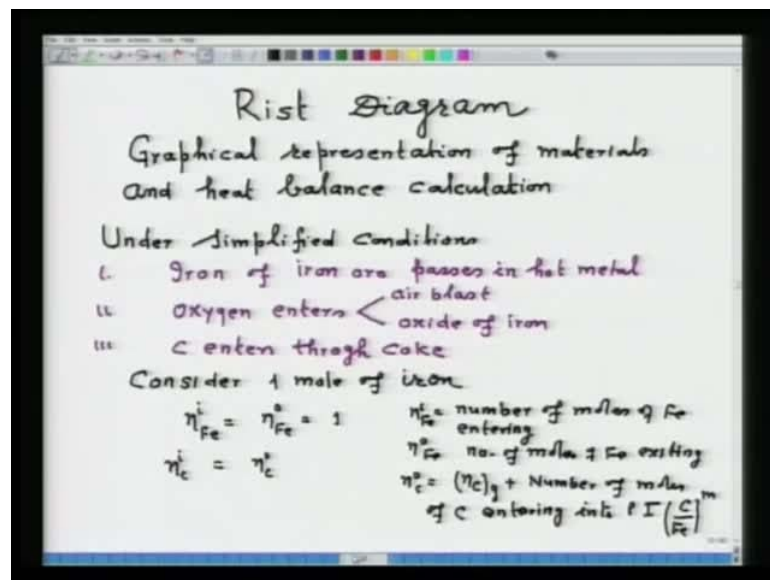 Rist Diagram
Graphical representation of materials
and heat balance calculation
Under simplified conditions
i. Iron of iron ore passes in hot metal
ii oxygen enters < air blast
oxide of iron
iii C enters throgh coke
Consider 1 mole of iron
n^i_Fe = n^o_Fe = 1
n^i_c = n^o_c
n^i_Fe = number of moles of Fe
entering
n^o_Fe no. of moles of Fe existing
n^o_c = (n_c)_g + Number of moles
of C entering into P I (C/Fe)^m